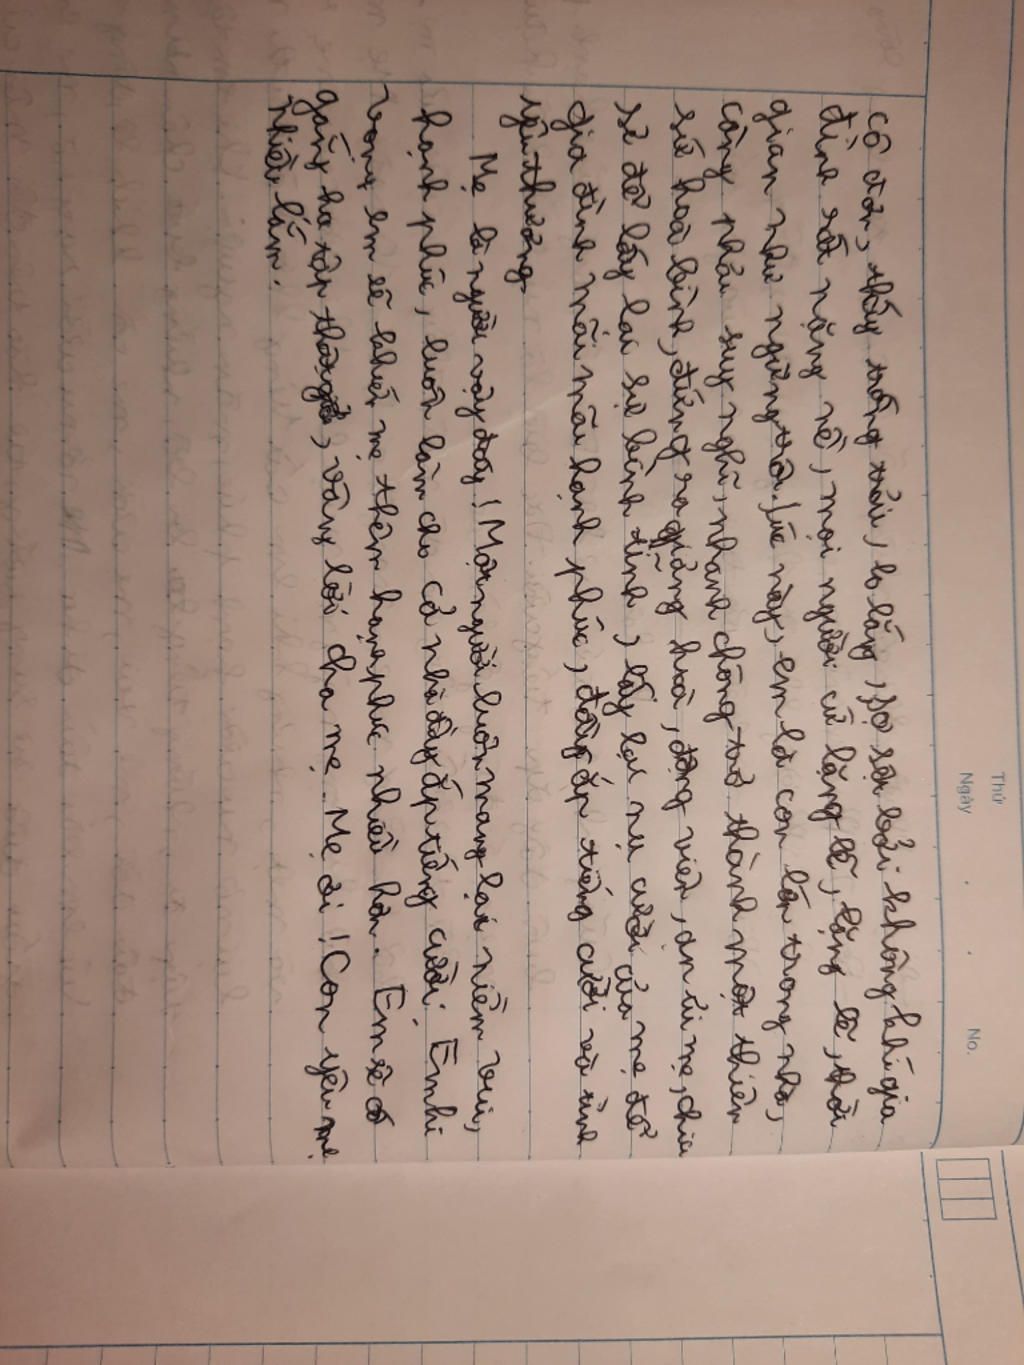 Thứ
Ngày . .
No.
cô đơn, thấy trống trải, lo lắng, sợ sệt bởi không khí gia
đình rất nặng nề, mọi người cứ lặng lẽ, lặng lẽ, thời
gian như ngừng trôi. Lúc này, em là con lớn trong nhà,
càng phải suy nghĩ, nhanh chóng trở thành một thiên
sứ hoà bình, đứng ra giảng hoà, động viên, an ủi mẹ, chia
sẻ để lấy lại sự bình tĩnh, lấy lại nụ cười của mẹ để
gia đình mãi mãi hạnh phúc, đầy ắp tiếng cười và tình
yêu thương.
Mẹ là người vậy đấy! Một người luôn mang lại niềm vui,
hạnh phúc, luôn làm cho cả nhà đầy ắp tiếng cười. Em hi
vọng em sẽ khiến mẹ thêm hạnh phúc nhiều hơn. Em sẽ cố
gắng học tập thật giỏi, vâng lời cha mẹ. Mẹ ơi! Con yêu mẹ
nhiều lắm.